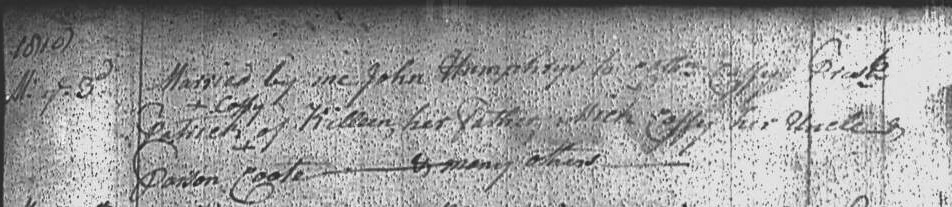 1810
M: of 3d Married by me John Humphrys to Esther Caffry Prest
+ Caffry
Patrick of Killeen, her Father, Mich Caffry her Uncle &
+
Parson Coote & many others